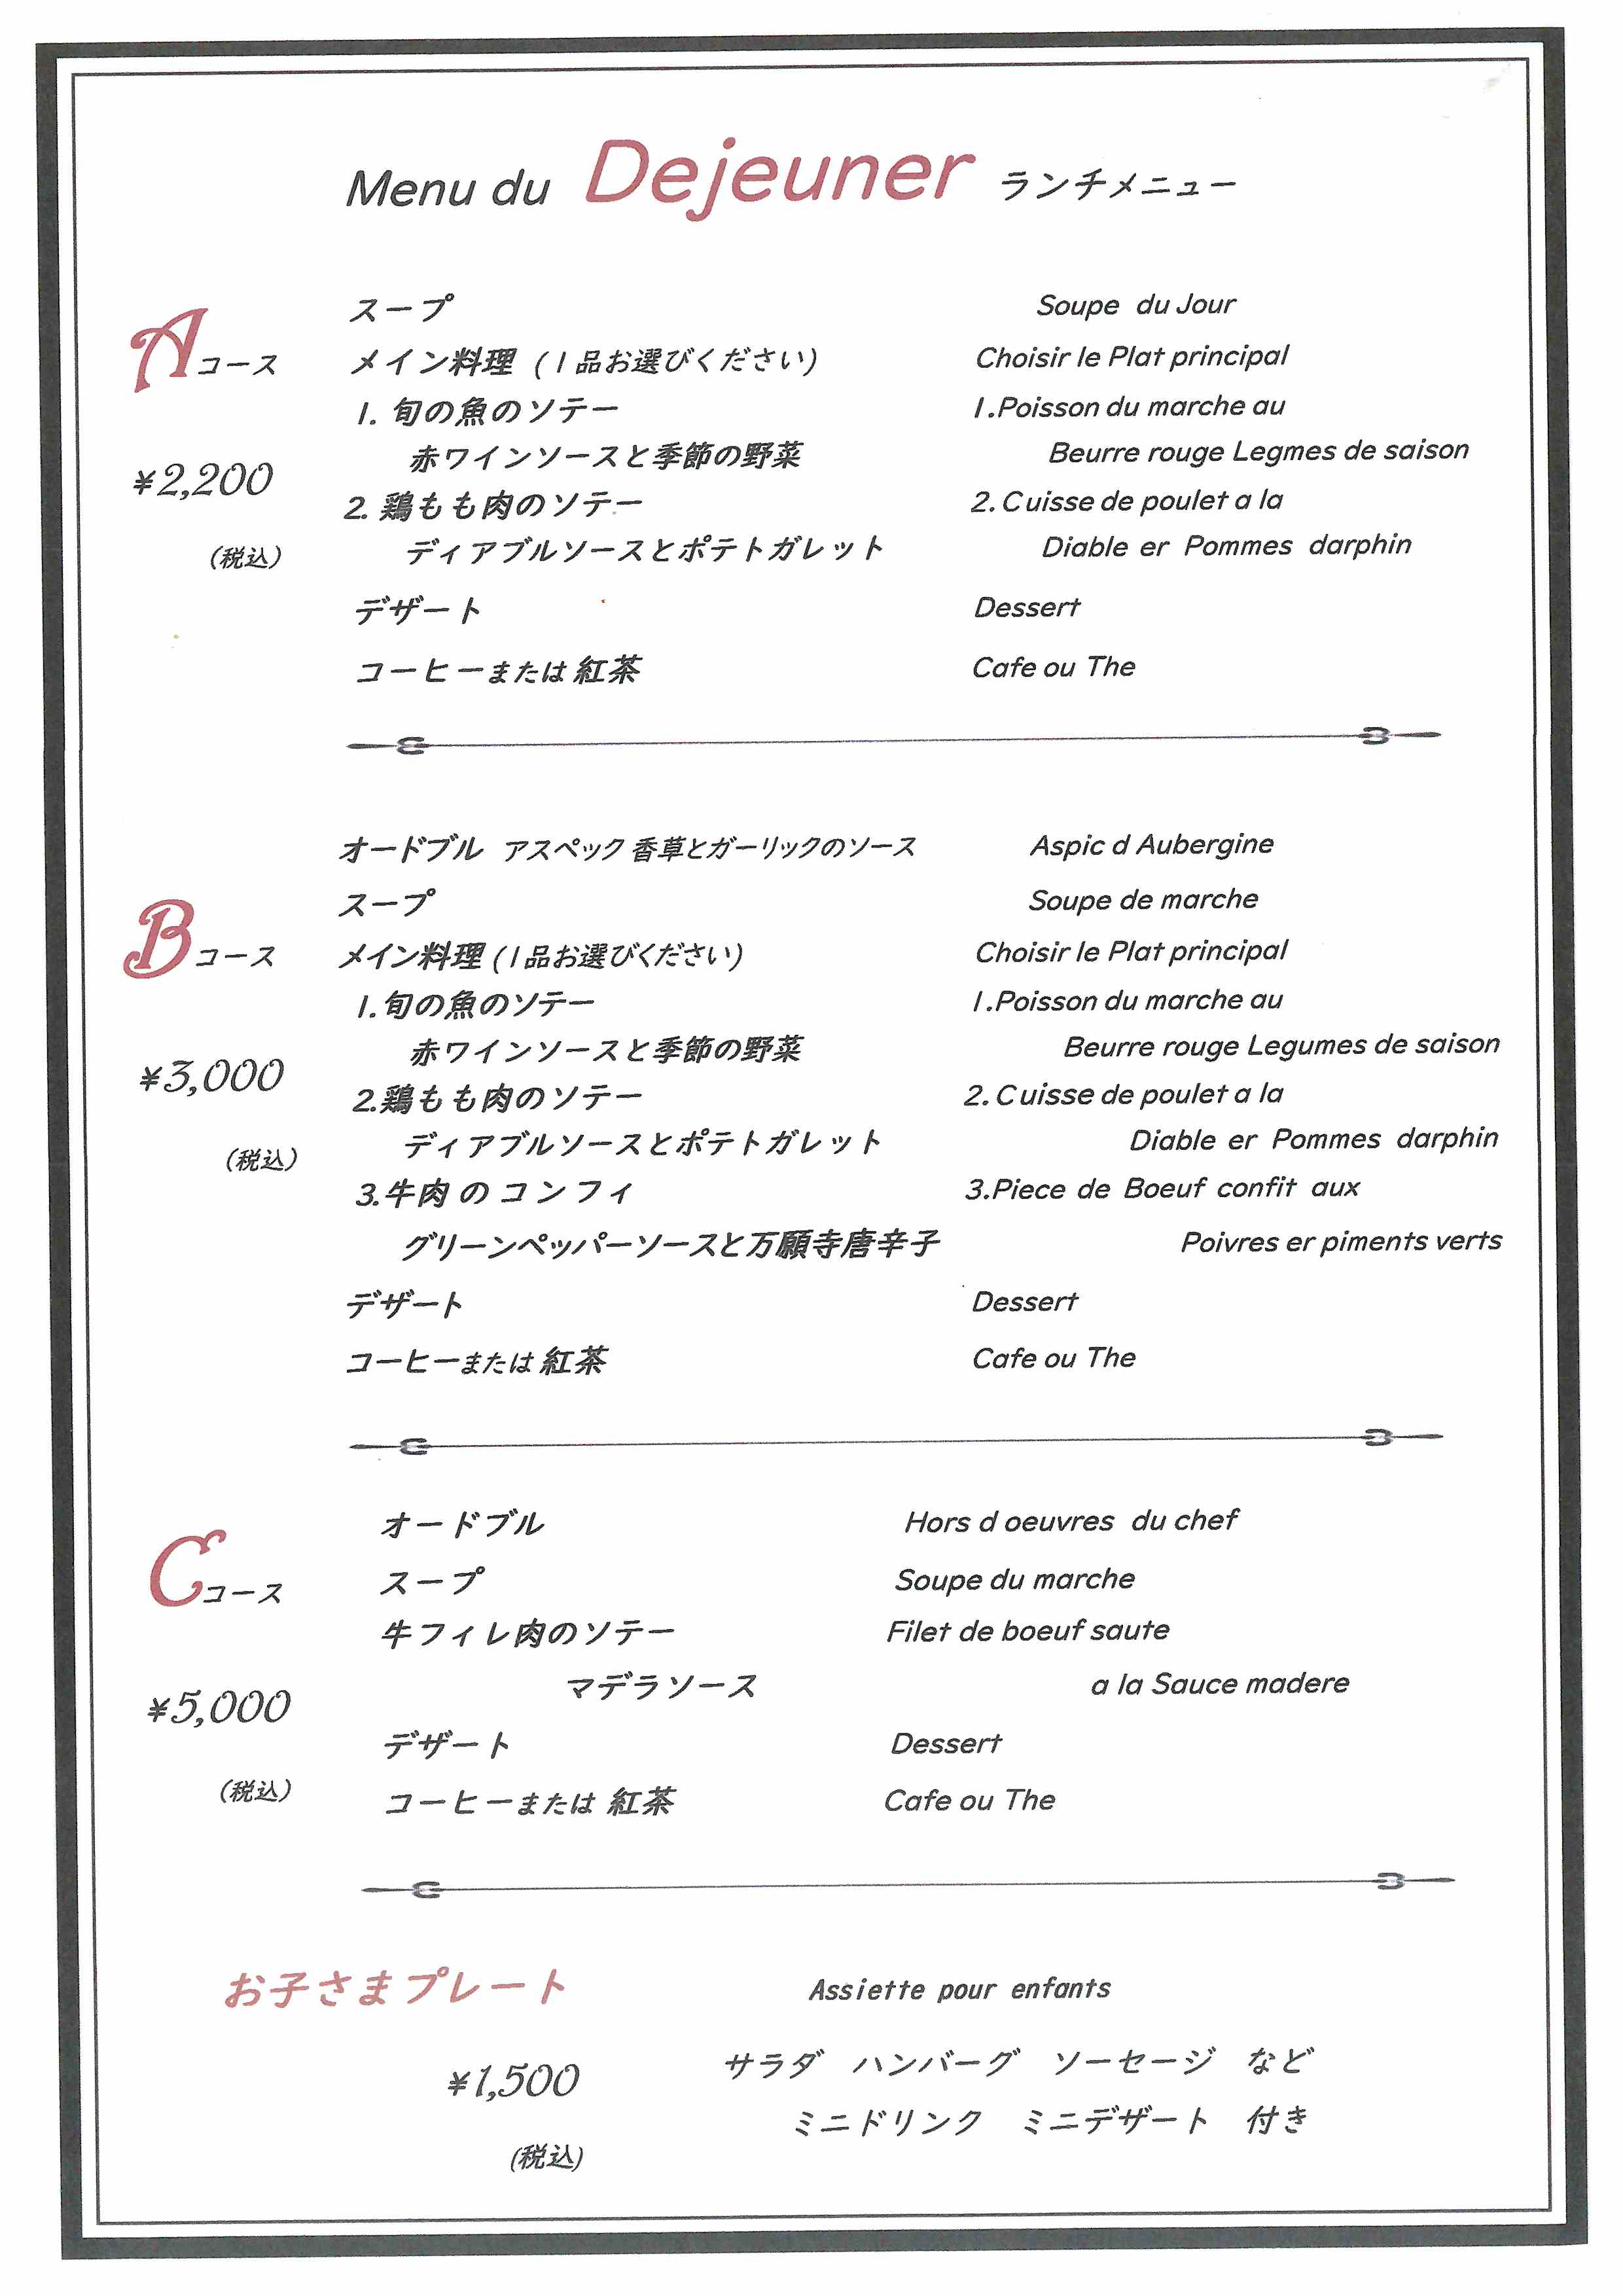 Menu du Dejeuner ランチメニュー
スープ Soupe du Jour
Aコース
メイン料理 (1品お選びください) Choisir le Plat principal
1. 旬の魚のソテー 1.Poisson du marche au
赤ワインソースと季節の野菜 Beurre rouge Legmes de saison
¥2,200
2. 鶏もも肉のソテー 2.Cuisse de poulet a la
ディアブルソースとポテトガレット Diable er Pommes darphin
(税込)
デザート Dessert
コーヒーまたは紅茶 Cafe ou The
オードブル アスペック 香草とガーリックのソース Aspic d Aubergine
スープ Soupe de marche
Bコース
メイン料理 (1品お選びください) Choisir le Plat principal
1.旬の魚のソテー 1.Poisson du marche au
赤ワインソースと季節の野菜 Beurre rouge Legumes de saison
¥3,000
2.鶏もも肉のソテー 2.Cuisse de poulet a la
ディアブルソースとポテトガレット Diable er Pommes darphin
(税込)
3.牛肉のコンフィ 3.Piece de Boeuf confit aux
グリーンペッパーソースと万願寺唐辛子 Poivres er piments verts
デザート Dessert
コーヒーまたは紅茶 Cafe ou The
オードブル Hors d oeuvres du chef
Cコース
スープ Soupe du marche
牛フィレ肉のソテー Filet de boeuf saute
マデラソース a la Sauce madere
¥5,000
デザート Dessert
(税込)
コーヒーまたは 紅茶 Cafe ou The
お子さまプレート Assiette pour enfants
サラダ ハンバーグ ソーセージ など
¥1,500
ミニドリンク ミニデザート 付き
(税込)